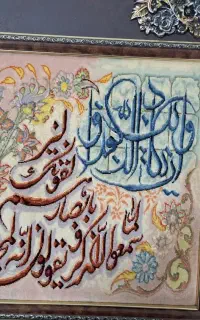 وان یکاد الذین کفروا
لیزلقونک
بابصارهم
لما سمعوا الذکر و یقولون انه